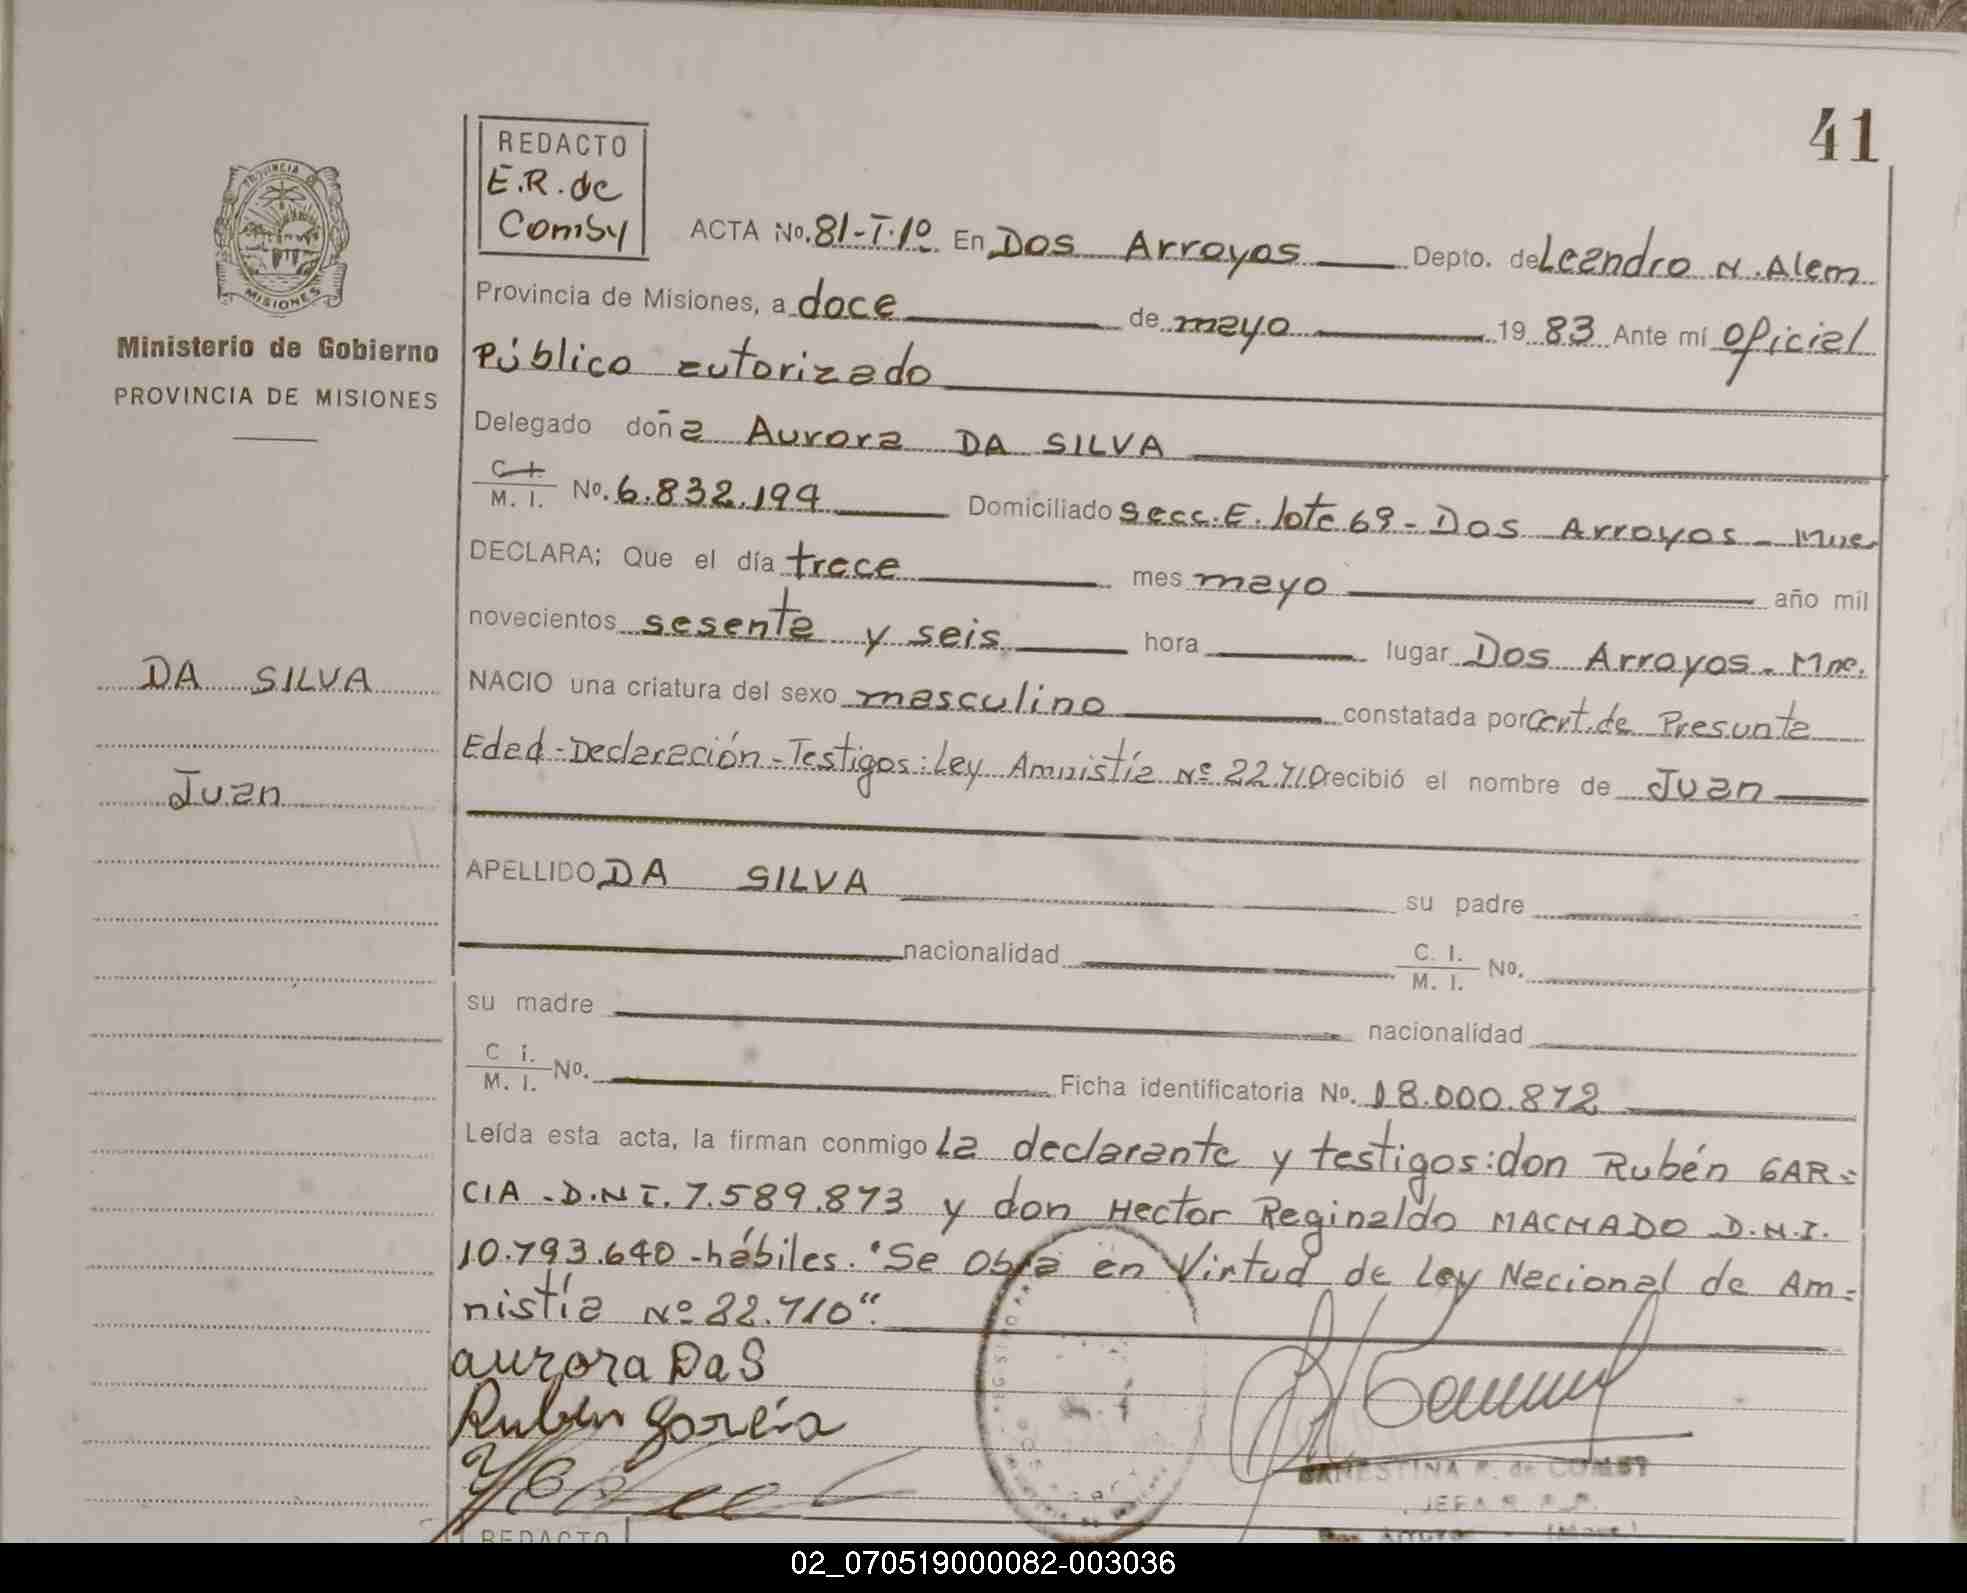 41
REDACTO
E.R. de
Comby
ACTA No. 81-T.1º En Dos Arroyos Depto. de Leandro N. Alem
Provincia de Misiones, a doce de mayo 1983 Ante mí Oficial
Público autorizado
Delegado doña Aurora DA SILVA
C.I. M. I. No. 6.832.194 Domiciliado Secc. E. lote 69 - Dos Arroyos - Mnes
DECLARA; Que el día trece mes mayo año mil
novecientos sesenta y seis hora lugar Dos Arroyos - Mnes.
NACIO una criatura del sexo masculino constatada por Cert. de Presunta
Edad - Declaración - Testigos: Ley Amnistía Nº 22.710 recibió el nombre de Juan
APELLIDO DA SILVA su padre
nacionalidad C. I. M. I. No.
su madre nacionalidad
C I. M. I. No. Ficha identificatoria No. 18.000.872
Leída esta acta, la firman conmigo la declarante y testigos: don Rubén GAR=
CIA - D.N.I. 7.589.873 y don Hector Reginaldo MACHADO D.N.I.
10.793.640 - hábiles. "Se obra en Virtud de Ley Nacional de Am=
nistía Nº 22.710".
aurora Da S
Ruben Garcia
ERNESTINA R. de COMBY
JEFA
Dos Arroyos
REDACTO
PROVINCIA DE
MISIONES
Ministerio de Gobierno
PROVINCIA DE MISIONES
DA SILVA
Juan
02_070519000082-003036